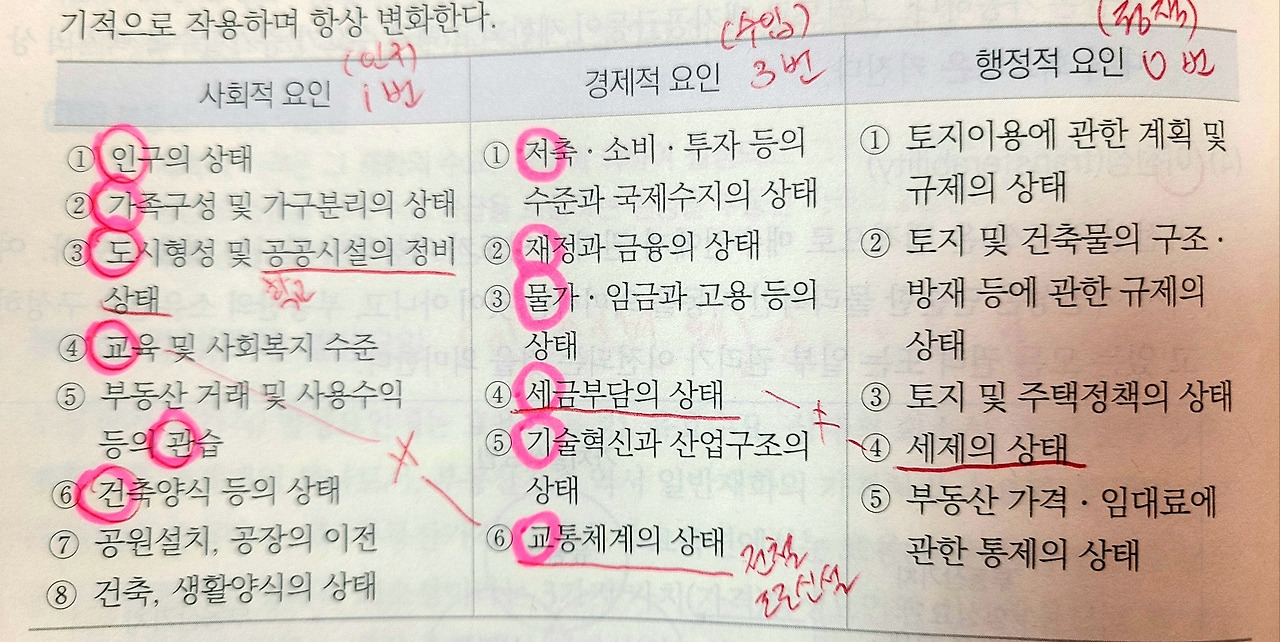 기적으로 작용하며 항상 변화한다.
(인지)
사회적 요인 1번
① 인구의 상태
② 가족구성 및 가구분리의 상태
③ 도시형성 및 공공시설의 정비
상태
학교
④ 교육 및 사회복지 수준
⑤ 부동산 거래 및 사용수익
등의 관습
⑥ 건축양식 등의 상태
⑦ 공원설치, 공장의 이전
⑧ 건축, 생활양식의 상태
(수입)
경제적 요인 3번
① 저축·소비·투자 등의
수준과 국제수지의 상태
② 재정과 금융의 상태
③ 물가·임금과 고용 등의
상태
④ 세금부담의 상태
⑤ 기술혁신과 산업구조의
상태
⑥ 교통체계의 상태
전철
도로신설
≠
(정책)
행정적 요인 0번
① 토지이용에 관한 계획 및
규제의 상태
② 토지 및 건축물의 구조·
방재 등에 관한 규제의
상태
③ 토지 및 주택정책의 상태
④ 세제의 상태
⑤ 부동산 가격·임대료에
관한 통제의 상태
≠